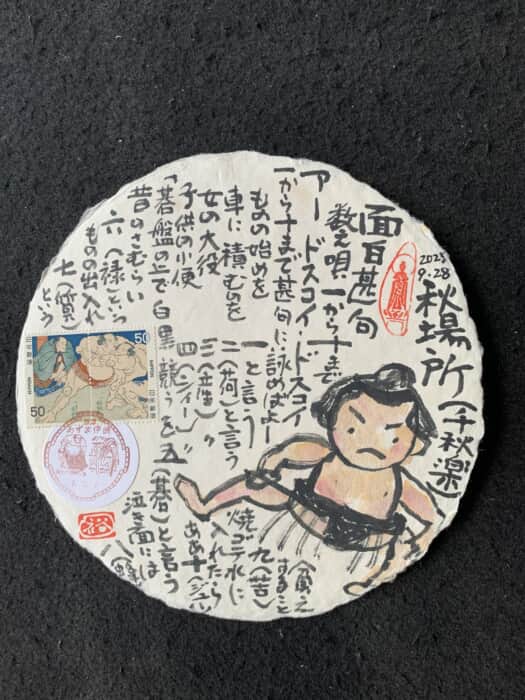 2025
9.28
秋場所(千秋楽)
面白甚句
数え唄 一から十まで
アー ドスコイ・ドスコイ
一から十まで甚句に詠めばよー
ものの始めを 一と言う
車に積むのを 二(荷)と言う
女の大役 三(産)〃
子供の小便 四(シィー)〃
「碁盤の上で白黒競うを五(碁)と言う
昔のさむらい
六(禄)という
ものの出入れ
七(質)という
泣き面には
八(蜂)
すること
九(苦)
焼ゴテ水に
入れたら
ああ十(ジュー)
50
50
日本郵便
NIPPON
裕